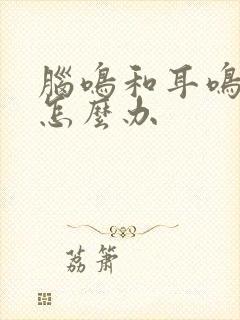 腦鳴和耳鳴
怎麼办
荔箫